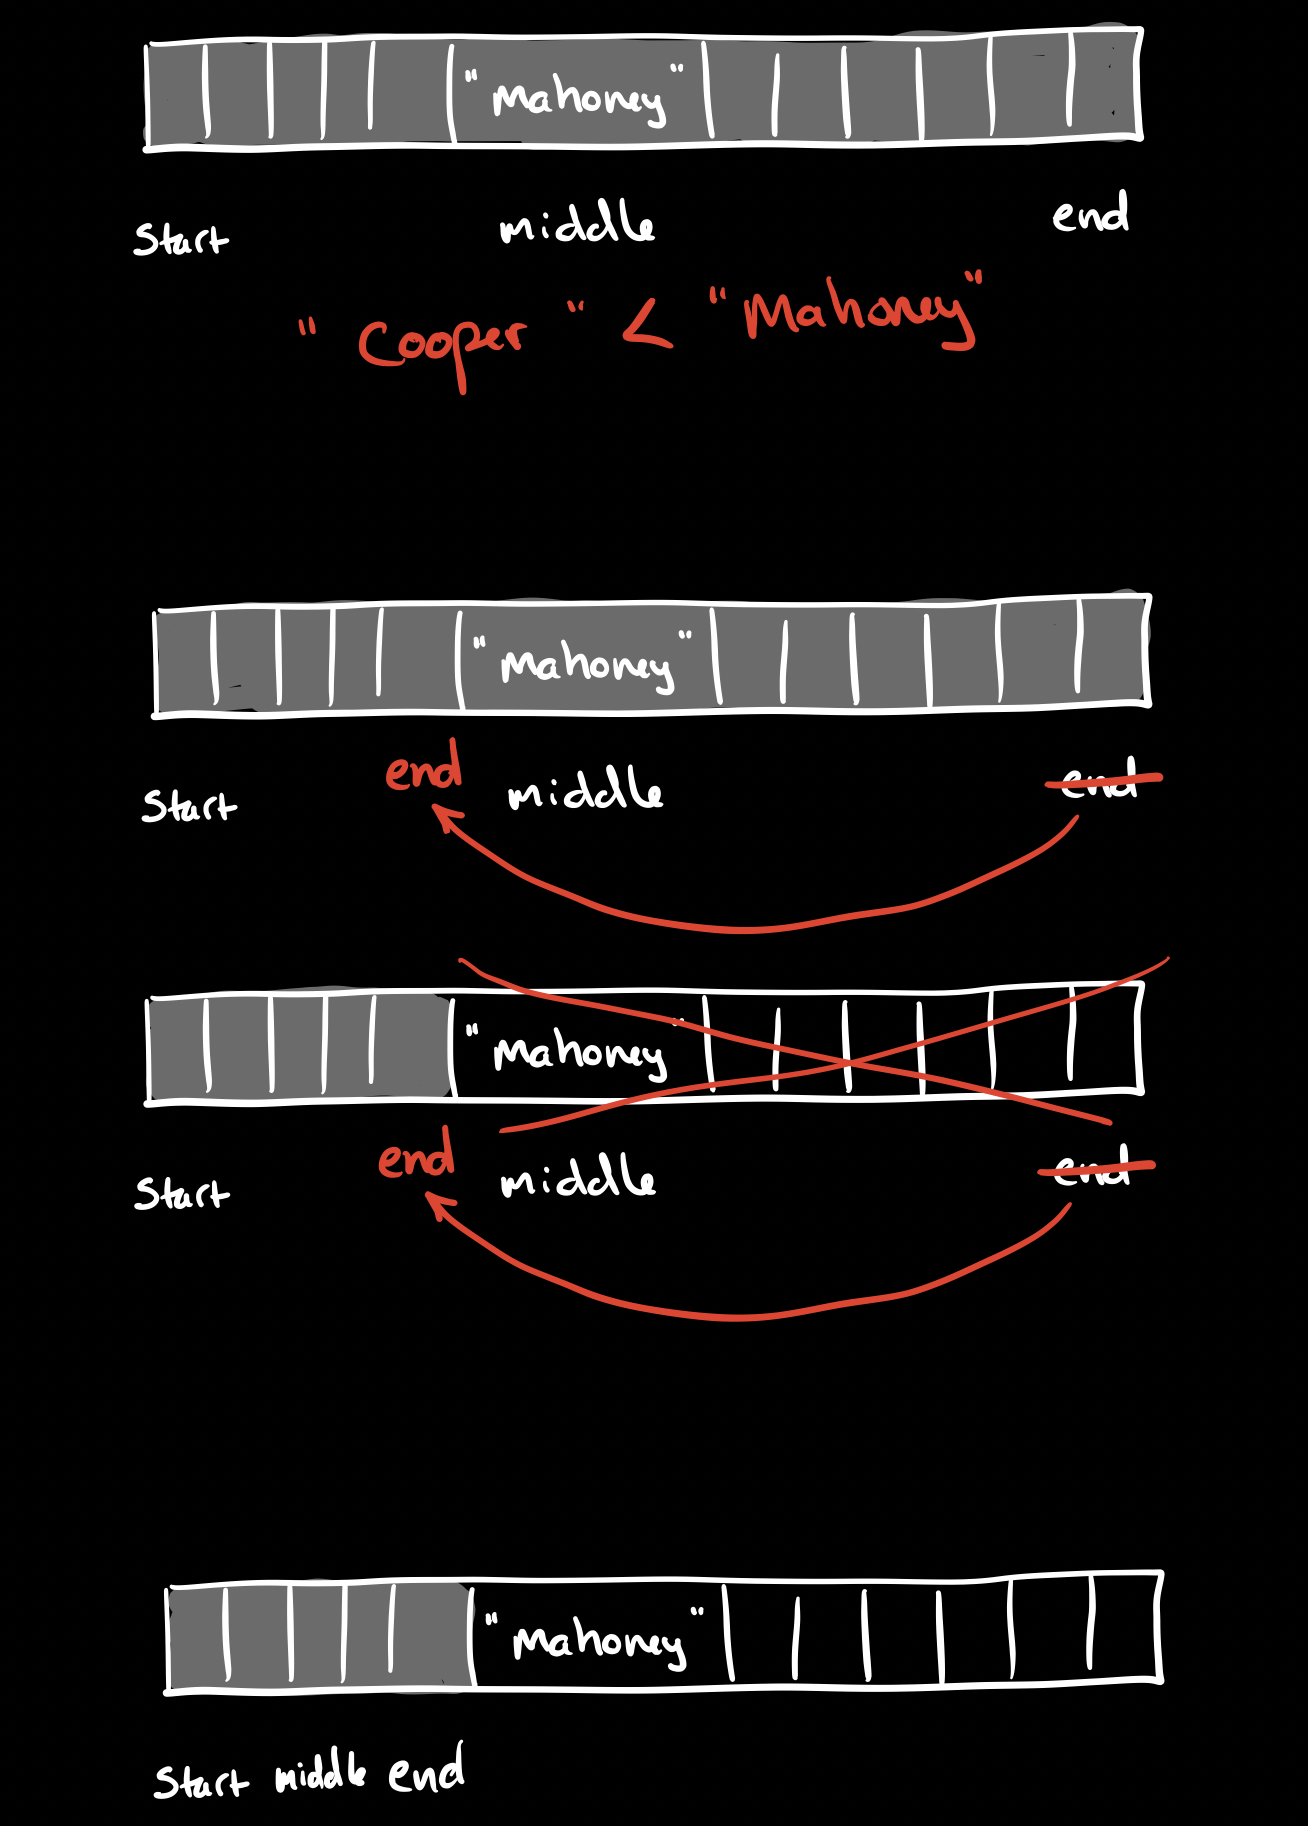 "Mahoney"
Start middle end
"Cooper" < "Mahoney"
"Mahoney"
Start end middle end
"Mahoney"
Start end middle end
"Mahoney"
Start middle end